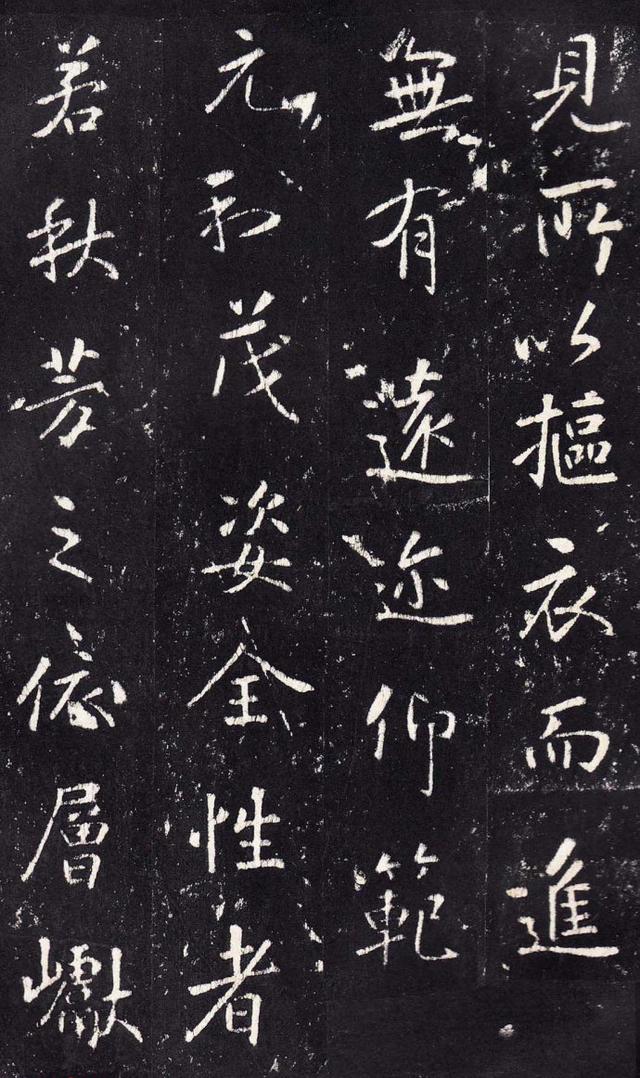 見所以摳衣而進
無有遠迩仰範
元和茂姿全性者
若秋芳之依層巘